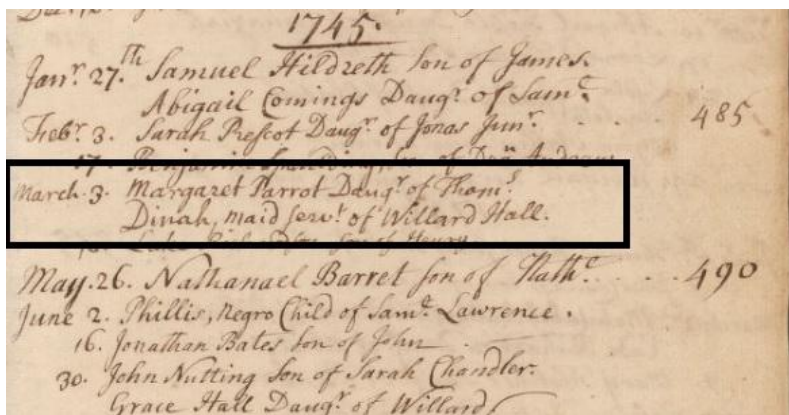 1745.
Janr. 27.th Samuel Hildreth Son of James.
Abigail Comings Daugr. of Saml.
Febr. 3. Sarah Prescot Daugr. of Jonas Junr. . . 485
17. Benjamin Spaulding, Son of Dea Andrew
March. 3. Margaret Parrot Daugr. of Thoms.
Dinah, maid Servt. of Willard Hall.
Luke Richardson Son of Henry
May. 26. Nathanael Barret Son of Nathl. . . . . 490
June 2. Phillis, Negro Child of Saml. Lawrence.
16. Jonathan Bates Son of John
30. John Nutting Son of Sarah Chandler.
Grace Hall Daugr. of Willard